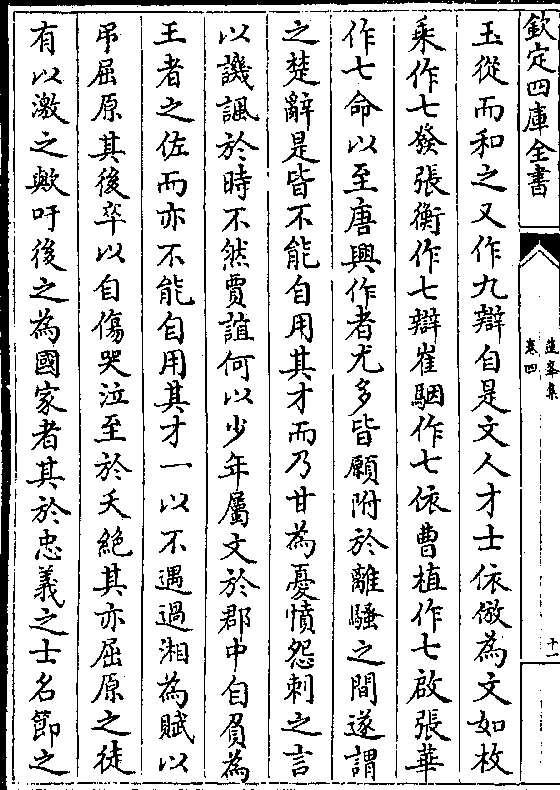 欽定四庫全書
蓮峯集
卷四
十一
玉從而和之又作九辯自是文人才士依倣為文如枚
乘作七發張衡作七辯崔駰作七依曹植作七啟張華
作七命以至唐興作者尤多皆願附於離騷之間遂謂
之楚辭是皆不能自用其才而乃甘為憂憤怨刺之言
以譏諷於時不然賈誼何以少年屬文於郡中自負為
王者之佐而亦不能自用其才一以不遇過湘為賦以
弔屈原其後卒以自傷哭泣至於夭絶其亦屈原之徒
有以激之歟吁後之為國家者其於忠義之士名節之